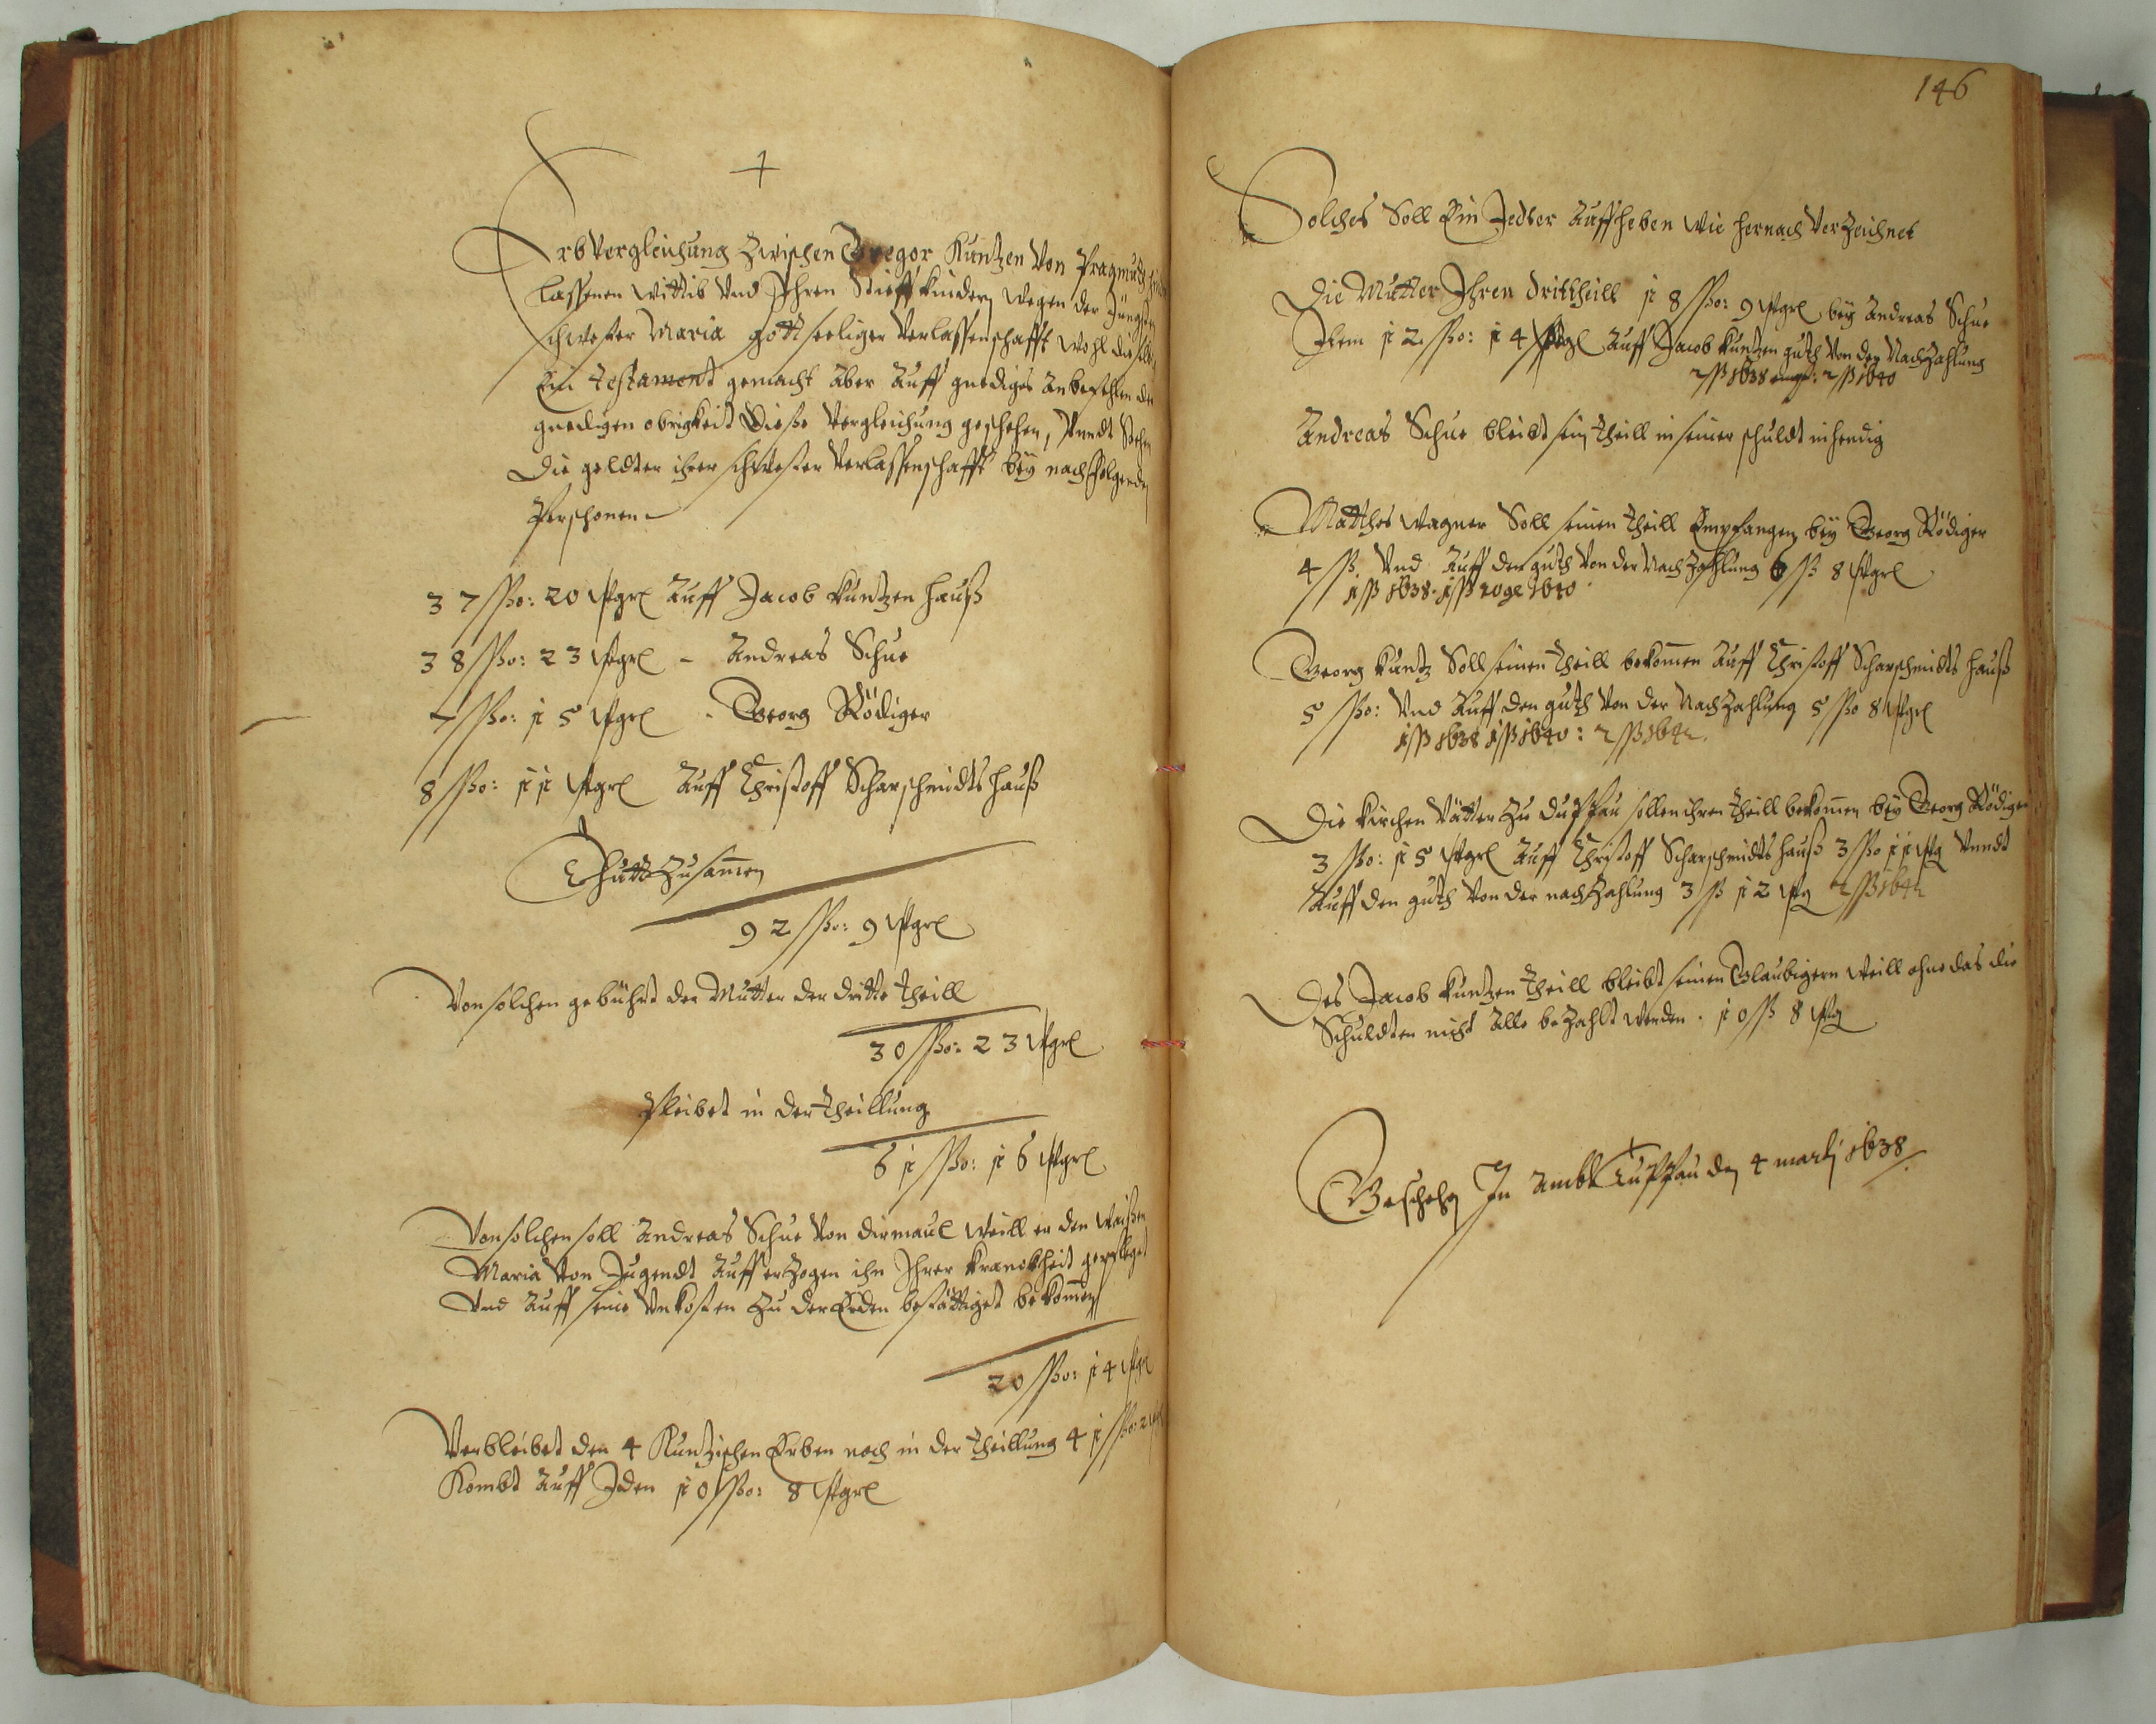 Erbvergleichung Zwischen Gregor Kuntzen Von Pragnutz hinder
lassenen Wittib Und Ihren Stieffkindern wegen der Jüngsten
schwester Maria gottseeliger Verlassenschafft Wohl dieselbe
Ein testament gemacht Aber Auff gnediges Anbefehlen der
gnedigen obrigkeit Dieße Vergleichung geschehen, Unndt Stehen
Die geldter ihrer schwester Verlassenschafft bey nachfolgenden
Perschonen
37 ßo: 20 wgrl Auff Jacob Kuntzen Hauß
38 ßo: 23 wgrl – Andreas Schue
7 ßo: 15 wgrl - Georg Rödiger
8 ßo: 11 wgrl Auff Christoff Scharschmidts Hauß
Thutt Zusamen
92 ßo: 9 wgrl
Von solchen gebührt der Mutter der dritte theill
30 ßo: 23 wgrl
Pleibet in der theillung
61 ßo: 16 wgrl
Von solchen soll Andreas Schue Von dirmaul Weill er den Waißen
Maria Von Jugendt Auff erzogen ihn Ihrer Kranckheit gepfleget
Und Auff seine Unkosten Zu der Erden bestättiget bekomen
20 ßo: 14 wgr
Verbleibet den 4 Kuntzischen Erben noch in der theillung 41 ßo: 2 wgl
Kombt Auff Jden 10 ßo: 8 wgrl
146
Solches Soll Ein Jedter Auffheben Wie hernach Verzeichnet
Die Mutter Ihren drittheill 18 ßo: 9 wgrl bey Andreas Schue
Item 12 ßo: 14 wgl Auff Jacob Kuntzen guth Von der Nachzahlung
2 ß 1638 2 ß 1640
Andreas Schue bleibt sein theill in seiner schuldt inhendig
Matthes Wagner Soll seinen theill Empfangen bey Georg Rödiger
4 ß Und Auff den guth Von der Nachzahlung 6 ß 8 wgrl
1 ß 1638. 1 ß 20 gl 1640
Georg Kuntz Soll seinen theill bekomen Auff Christoff Scharschmidts Hauß
5 ßo: Und Auff den guth Von der Nachzahlung 5 ßo 8 wgrl
1 ß 1638 1 ß 1640: 2 ß 1642.
Die Kirchen Vätter Zu Duppau sollen ihren theill bekomen bey Georg Rödiger
3 ßo: 15 wgrl Auff Christoff Scharschmidts Hauß 3 ßo 11 wg Unndt
Auff den guth Von der nachzahlung 3 ß 12 wg 2 ß 1642
Des Jacob Kuntzen theill bleibt seinen Glaubigern Weill ohne das die
Schuldten nicht Alle bezahlt werden. 10 ß 8 wg
Geschehen In Ambt Tuppau den 4 martij 1638